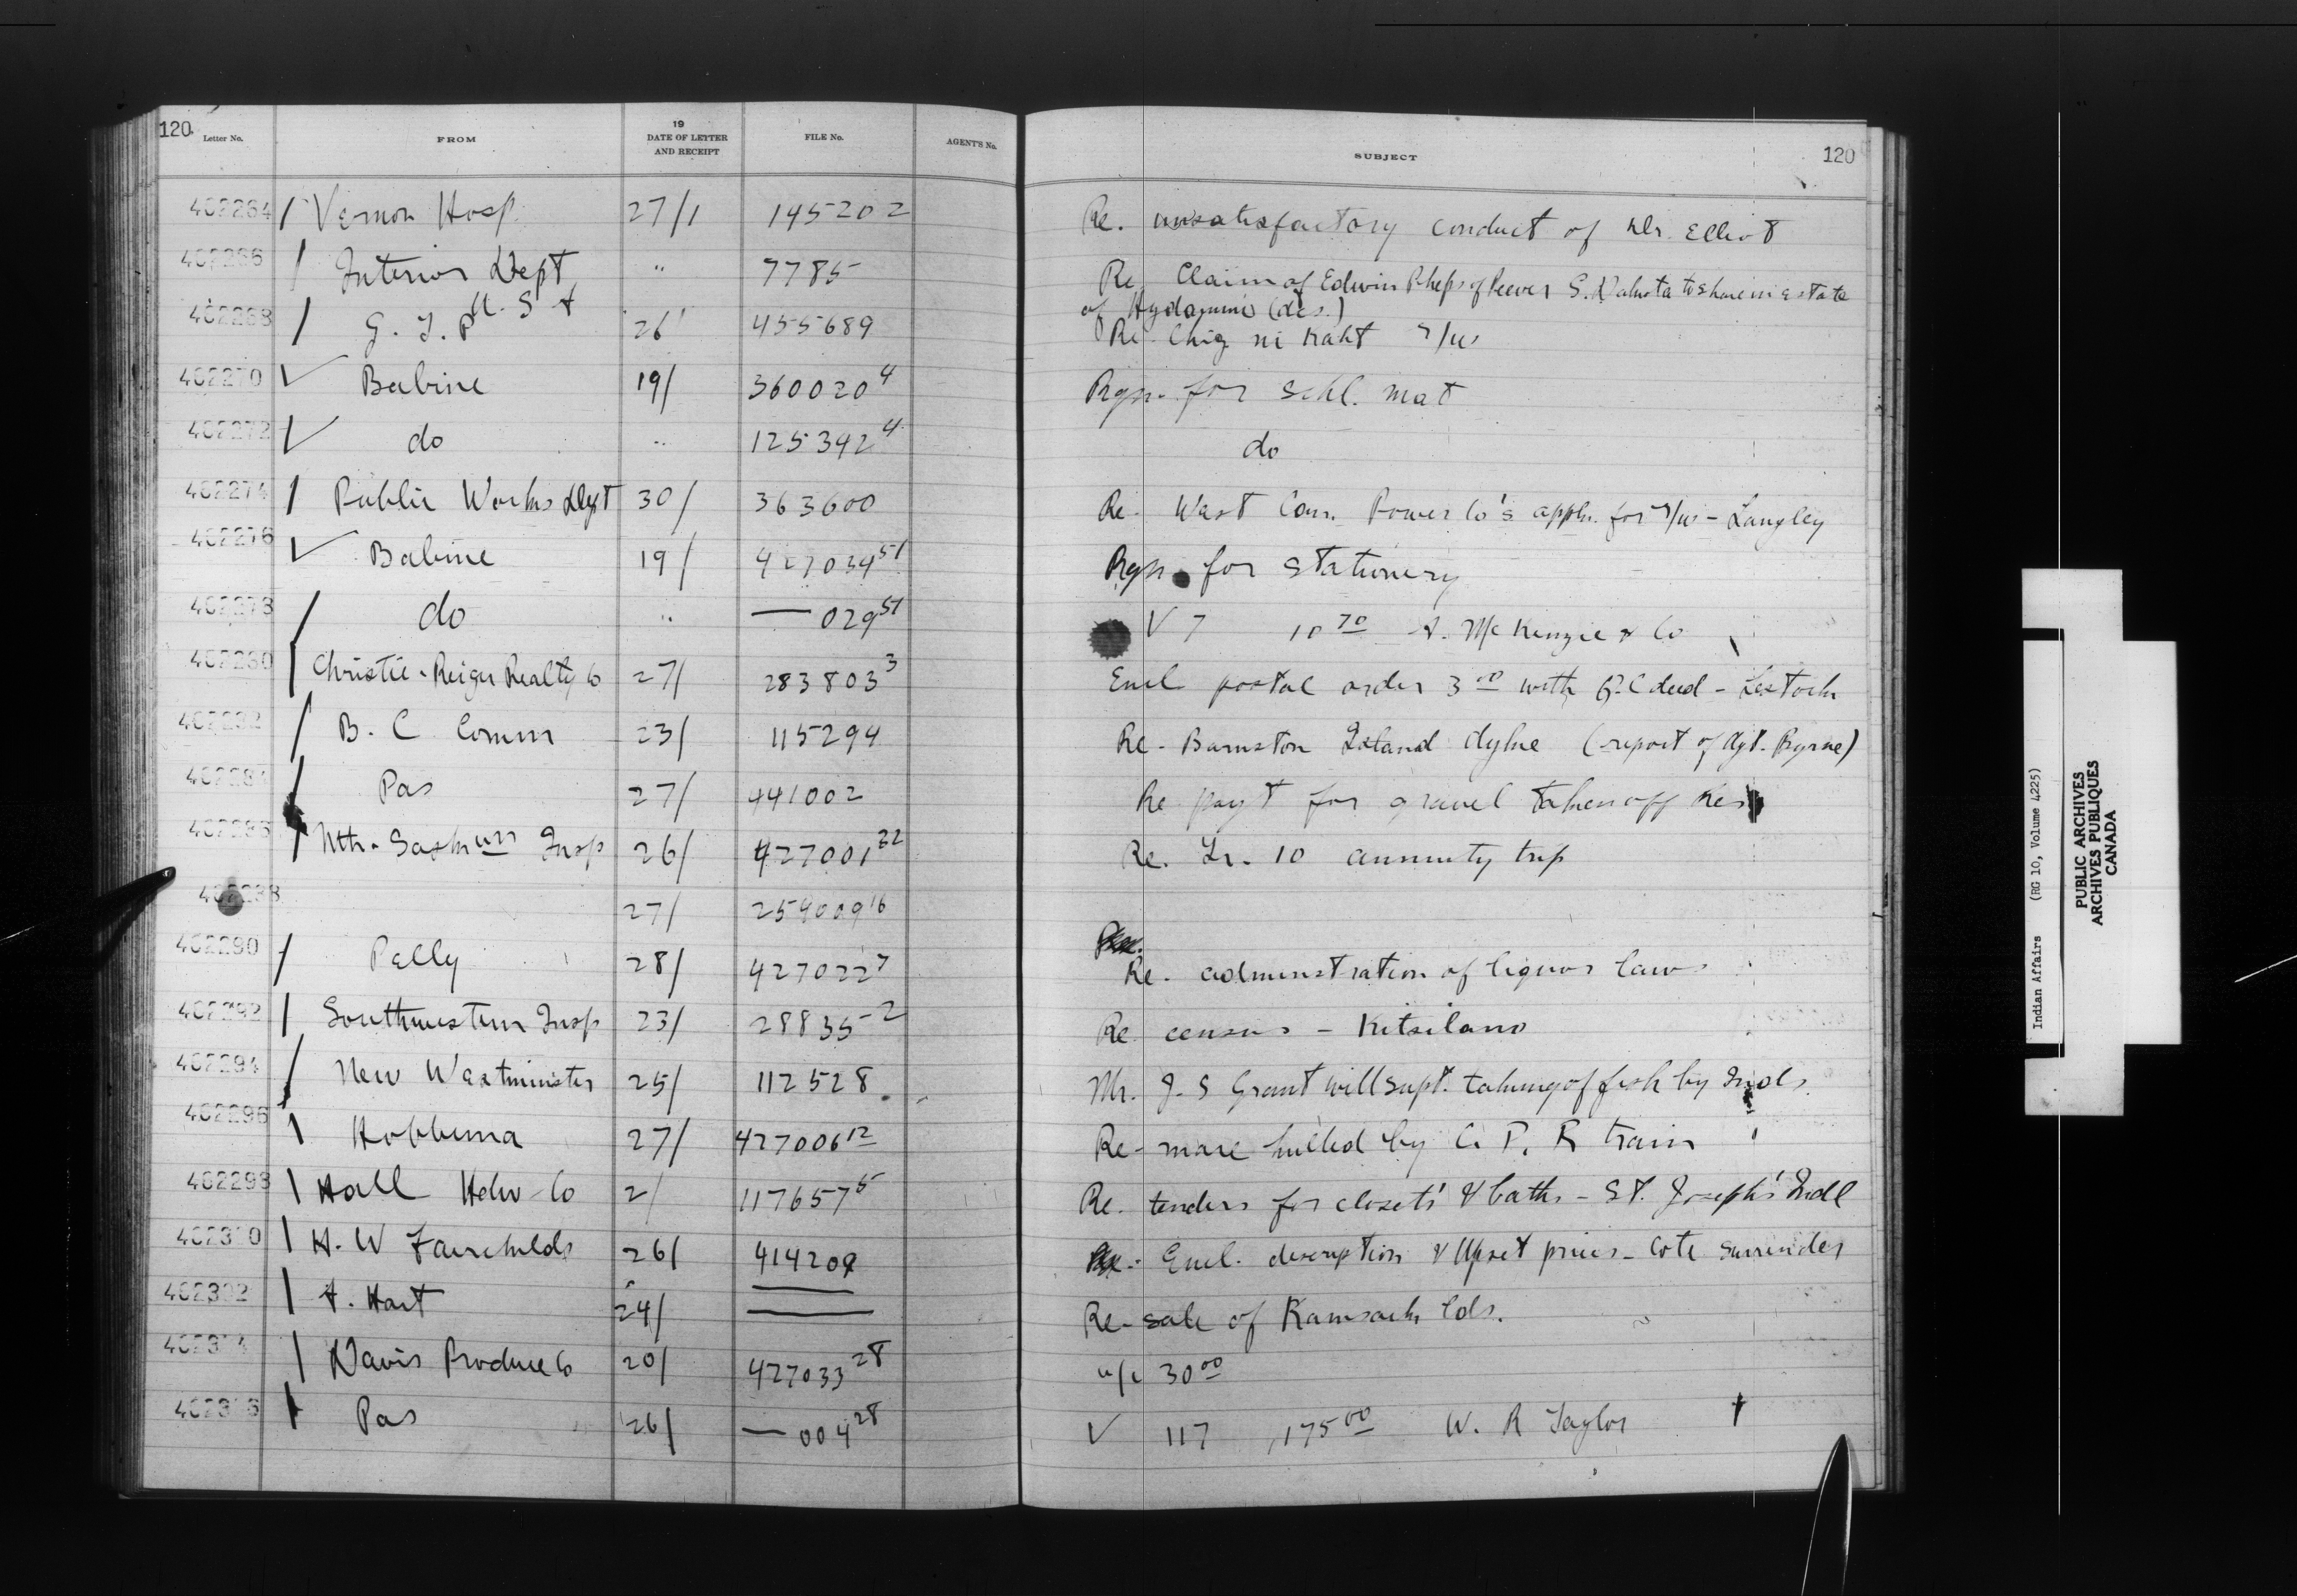 120 Letter No. FROM 19 DATE OF LETTER AND RECEIPT FILE No. AGENT'S No. SUBJECT 120
402264 / Vernon Hosp. 27/1 145202 Re. unsatisfactory conduct of Dr. Elliot
402266 / Interior Dept " 7785 Re. Claim of Edwin Phelps of Peever S. Dakota to share in estate
U. S. A of (des.)
402268 / G. T. P 26 455689 Re. Chig ni Kaht r/w
402270 ✓ Babine 19/ 360020⁴ Rqn. for schl. mat
402272 ✓ do " 125392⁴ do
402274 / Public Works Dept 30/ 363600 Re- West Can. Power Co's appln. for r/w - Langley
402276 ✓ Babine 19/ 427034⁵¹ Rqn. for stationery
402278 / do " — 029⁵¹ V 7 10⁷⁰ A. McKenzie & Co
402280 / Christie-Reiger Realty Co 27/ 283803³ Encl postal order 3⁰⁰ with Q.C deed - Lestock
402282 / B. C Comm 23/ 115294 Re- Barnston Island dyke (report of Agt. Byrne)
/ Pas 27/ 441002 Re payt for gravel taken off Res
/ Nth. Saskwn Insp 26/ 427001²² Re. Tr. 10 annuity trip
402288 27/ 254009¹⁶
402290 / Pelly 28/ 427022⁷ Re. administration of liquor laws
402292 / Southwestern Insp 23/ 28835-2 Re census - Kitsilano
402294 / New Westminster 25/ 112528 Mr. J. S Grant will supt. taking of fish by Inds.
402296 / Hobbema 27/ 427006¹² Re- mare killed by C. P. R train
402298 / Hall Hdw Co 2/ 117657⁵ Re. tenders for closets' & baths - St. Joseph's Indl
/ H. W Fairchilds 26/ 414209 Encl. description & Upset prices - Cote surrender
402302 / A. Hart 24/ — Re- sale of Kamsack lds.
/ Davis Produce Co 20/ 427033²⁸ a/c 30⁰⁰
/ Pas 26/ — 004²⁸ V 117 175⁰⁰ W. R Taylor
Indian Affairs (RG 10, Volume 4225)
PUBLIC ARCHIVES
ARCHIVES PUBLIQUES
CANADA